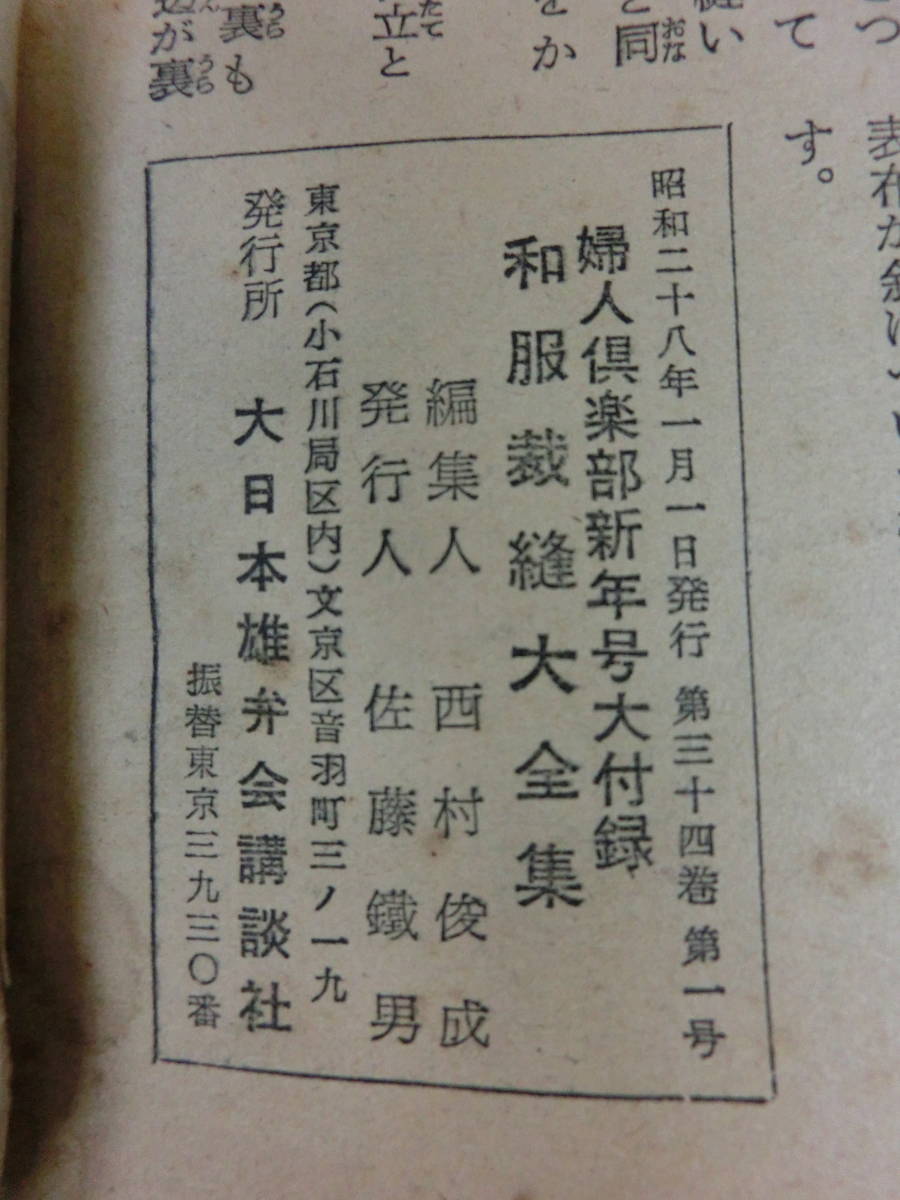 す。
と同
おな
をか
立と
たて
裏も
うら
が裏
うら
昭和二十八年一月一日発行 第三十四巻 第一号
婦人倶楽部新年号大付録
和服裁縫大全集
編集人 西村俊成
発行人 佐藤鐵男
東京都(小石川局区内)文京区音羽町三ノ一九
発行所 大日本雄弁会講談社
振替東京三九三〇番